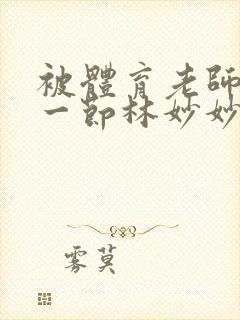 被體育老師
一節林妙妙
雾莫